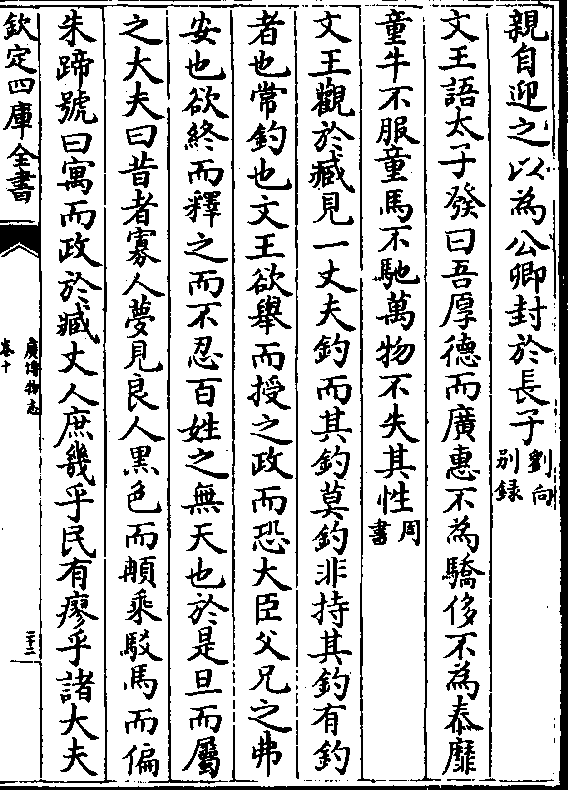 親自迎之以為公卿封於長子劉向別録
文王語太子發曰吾厚德而廣惠不為驕侈不為泰靡
童牛不服童馬不馳萬物不失其性周書
文王觀於臧見一丈夫釣而其釣莫釣非持其釣有釣
者也常釣也文王欲舉而授之政而恐大臣父兄之弗
安也欲終而釋之而不忍百姓之無天也於是旦而屬
之大夫曰昔者寡人夢見良人黒色而䫇乘駁馬而偏
朱蹄號曰寓而政於臧丈人庶幾乎民有瘳乎諸大夫
欽定四庫全書
廣博物志
卷十
二十二